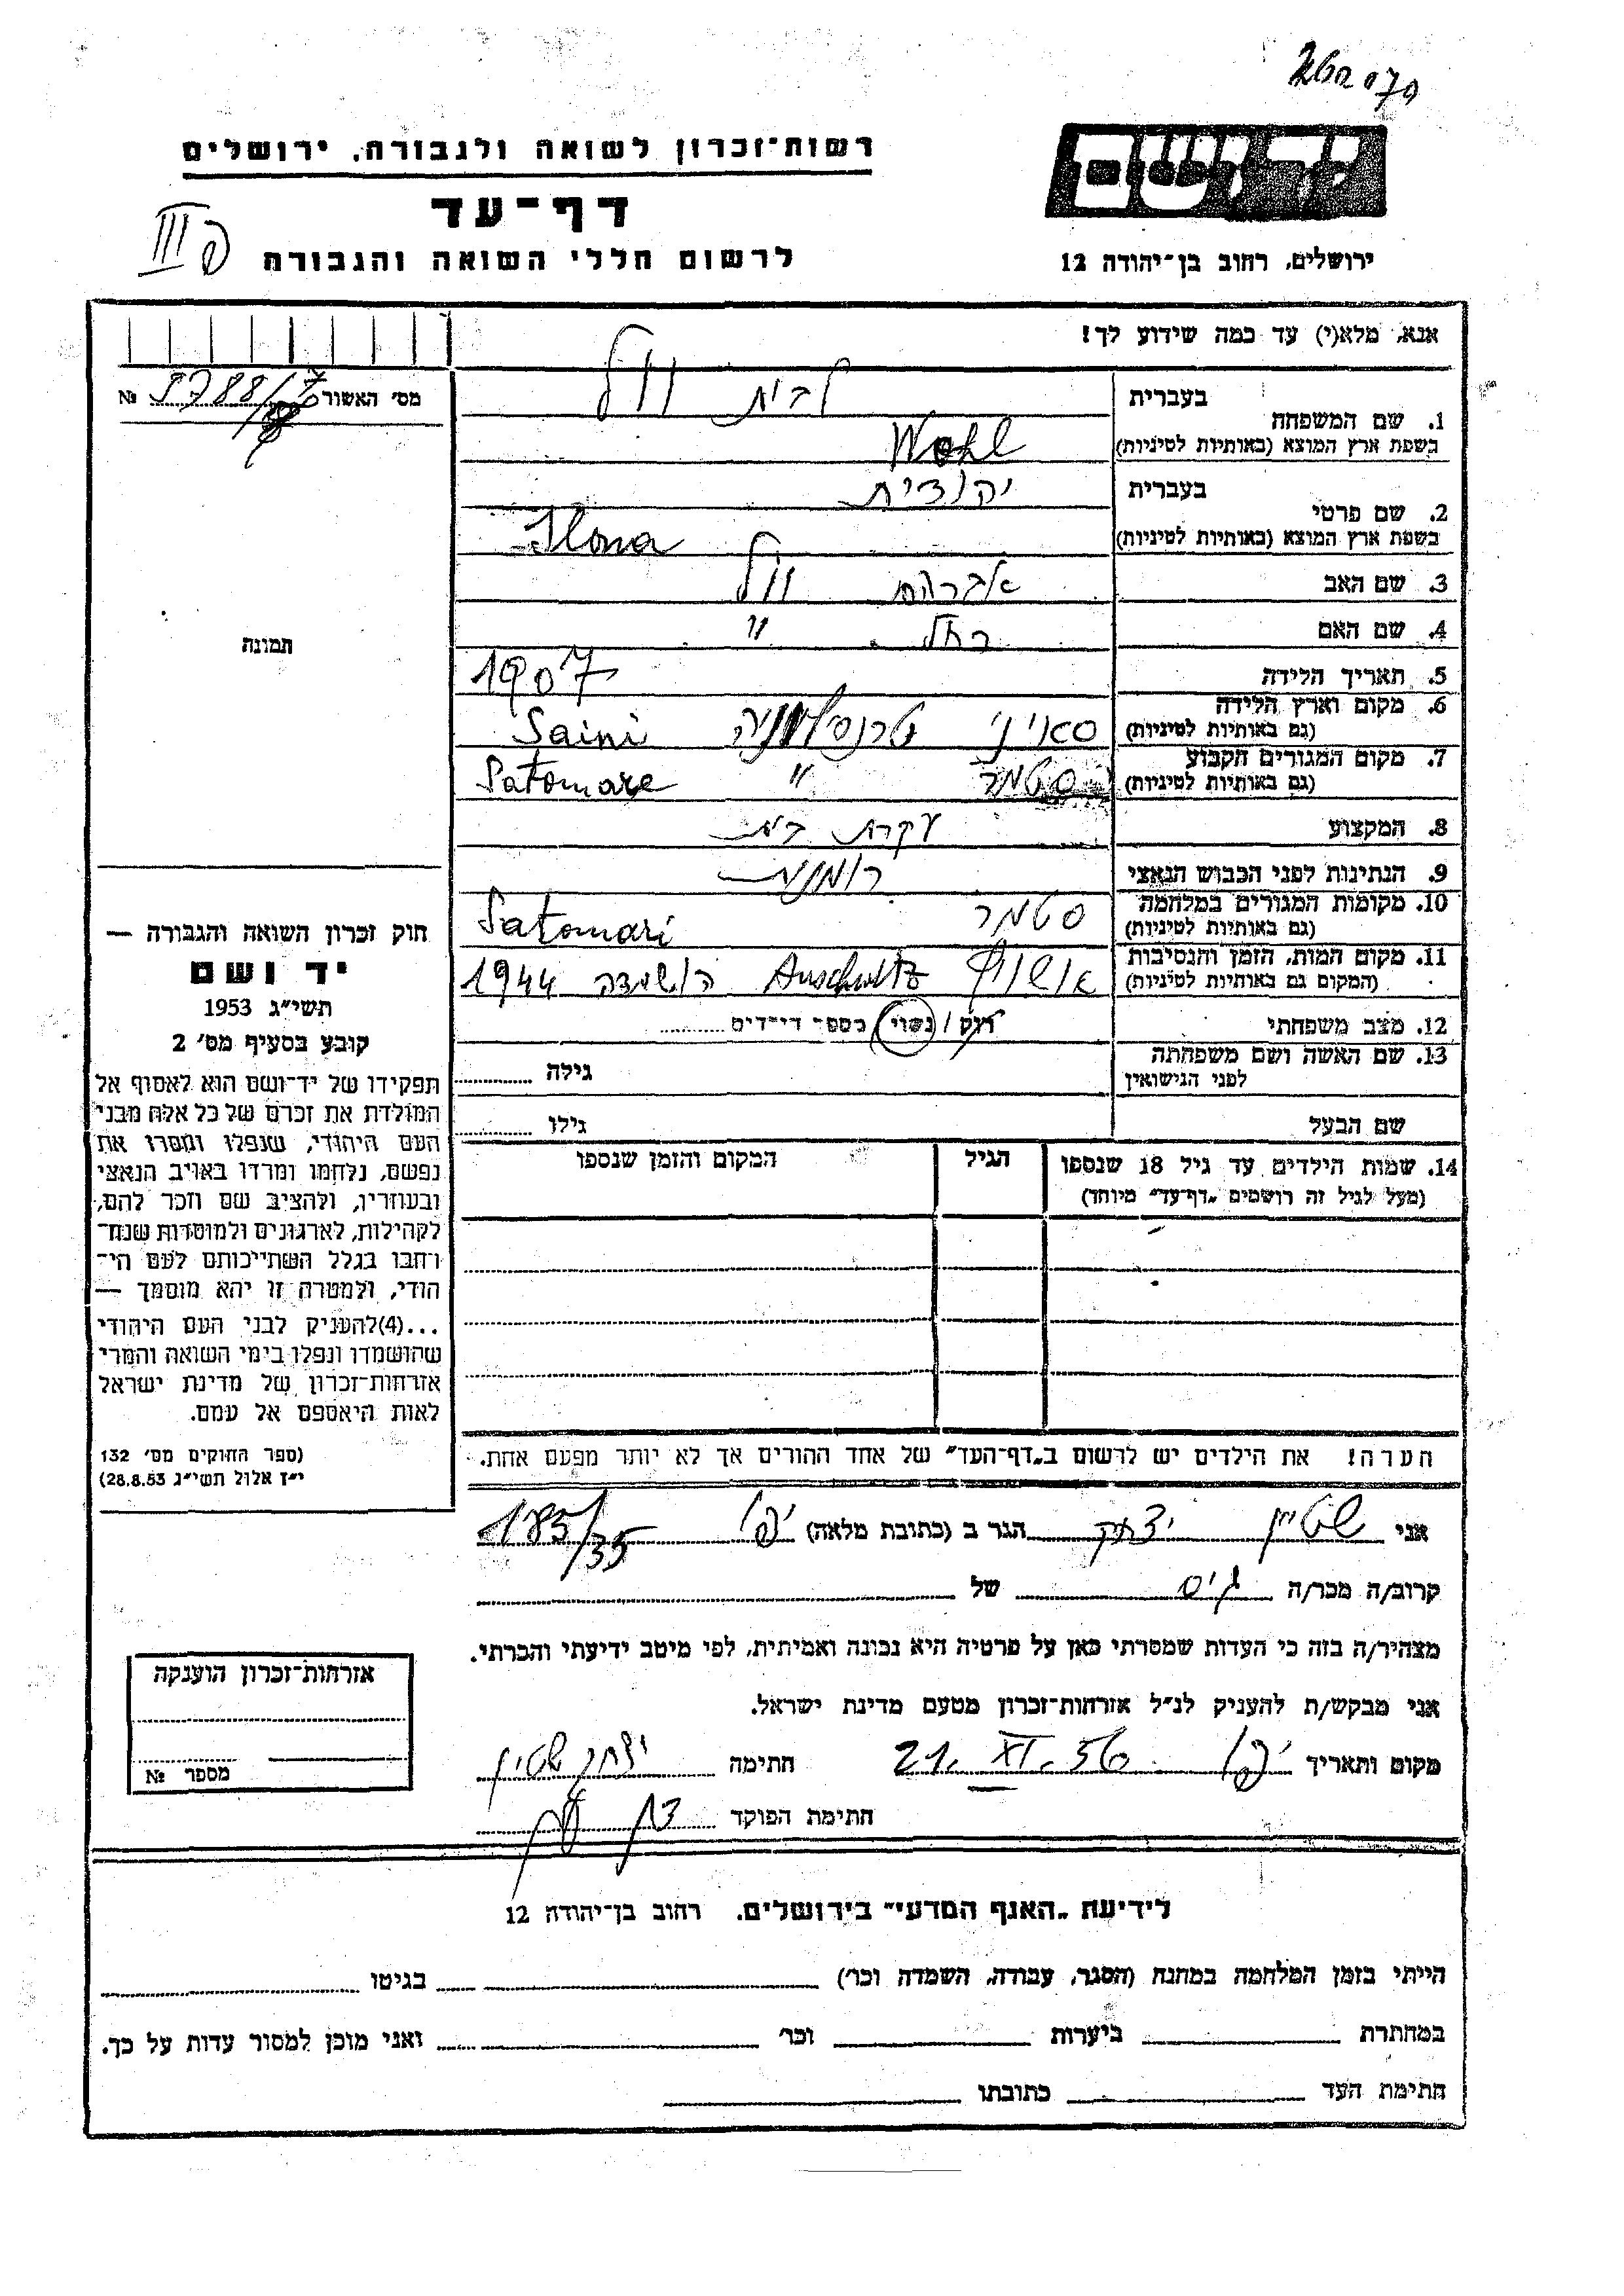 רשות־זכרון לשואה ולגבורה, ירושלים
דף־עד
לרשום חללי השואה והגבורה
יד ושם
ירושלים, רחוב בן־יהודה 12
III פ
אנא, מלא(י) עד כמה שידוע לך!
מס׳ האשור № 9788/7
תמונה
1. שם המשפחה
בעברית לבית וול
בשפת ארץ המוצא (באותיות לטיניות) Wohl
2. שם פרטי
בעברית יהודית
בשפת ארץ המוצא (באותיות לטיניות) Ilona
3. שם האב אברהם וול
4. שם האם רחל "
5. תאריך הלידה 1907
6. מקום וארץ הלידה
(גם באותיות לטיניות) סאיני טרנסילווניה Saini
7. מקום המגורים הקבוע
(גם באותיות לטיניות) סטמר " Satomare
8. המקצוע עקרת בית
9. הנתינות לפני הכבוש הנאצי רומנית
10. מקומות המגורים במלחמה
(גם באותיות לטיניות) סטמר Satomari
11. מקום המות, הזמן והנסיבות
(המקום גם באותיות לטיניות) אושויץ Auschwitz הושמדה 1944
12. מצב משפחתי רוק / נשוי / מספר ילדים
13. שם האשה ושם משפחתה
לפני הנישואין גילה
שם הבעל גילו
14. שמות הילדים עד גיל 18 שנספו
(מעל לגיל זה רושמים „דף־עד" מיוחד)
הגיל
המקום והזמן שנספו
הערה! את הילדים יש לרשום ב„דף־העד" של אחד ההורים אך לא יותר מפעם אחת.
חוק זכרון השואה והגבורה —
יד ושם
תשי״ג 1953
קובע בסעיף מס׳ 2
תפקידו של יד־ושם הוא לאסוף אל
המולדת את זכרם של כל אלה מבני
העם היהודי, שנפלו ומסרו את
נפשם, נלחמו ומרדו באויב הנאצי
ובעוזריו, ולהציב שם וזכר להם,
לקהילות, לארגונים ולמוסדות שנח־
רבו בגלל השתייכותם לעם הי־
הודי, ולמטרה זו יהא מוסמך —
...(4)להעניק לבני העם היהודי
שהושמדו ונפלו בימי השואה והמרי
אזרחות־זכרון של מדינת ישראל
לאות היאספם אל עמם.
(ספר החוקים מס׳ 132
י״ז אלול תשי״ג 28.8.53)
אני שטיין יצחק הגר ב (כתובת מלאה) יפו 185/35
קרוב/ה מכר/ה גיס של
מצהיר/ה בזה כי העדות שמסרתי כאן על פרטיה היא נכונה ואמיתית, לפי מיטב ידיעתי והכרתי.
אני מבקש/ת להעניק לנ״ל אזרחות־זכרון מטעם מדינת ישראל.
מקום ותאריך יפו 21. XI. 56 חתימה יצחק שטיין
חתימת הפוקד
אזרחות־זכרון הוענקה
מספר №
לידיעת „האגף המדעי" בירושלים, רחוב בן־יהודה 12
הייתי בזמן המלחמה במחנה (הסגר, עבודה, השמדה וכו׳) בגיטו
במחתרת ביערות וכו׳ ואני מוכן למסור עדות על כך.
חתימת העד כתובתו